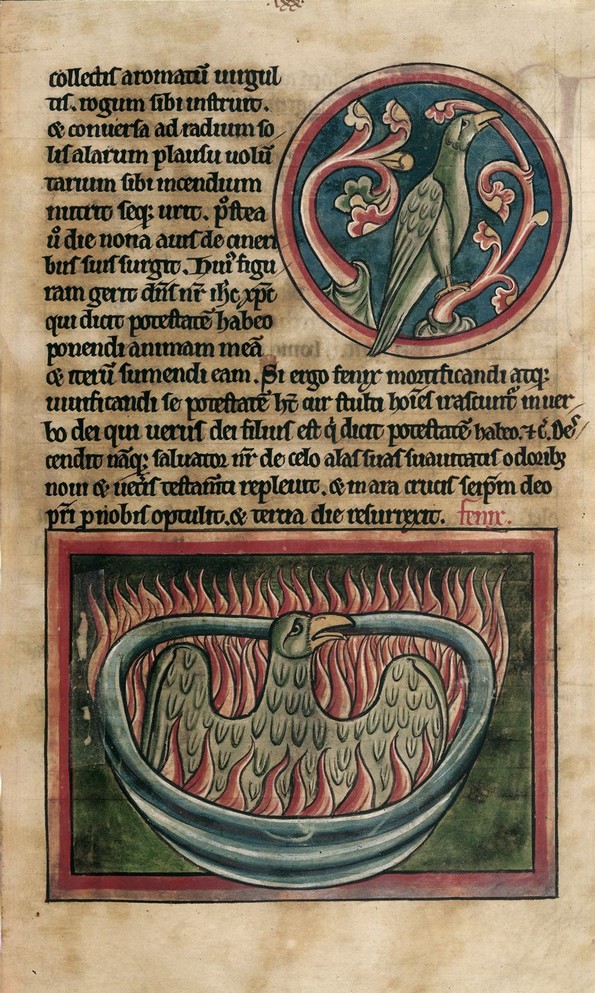 collectis aromatū uirgul
tis. rogum sibi instruit.
& conuersa ad radium so
lis alarum plausu uolū
tarium sibi incendium
nutrit seqꝫ urit. p̄ſtea
ū die nona auis de cineri
bus suis surgit. Huiꝰ figu
ram gerit dn̄s nr̄ ih̄c xp̄c
qui dicit potestatē habeo
ponendi animam meā
& iterū sumendi eam. Si ergo fenix mortificandi atqꝫ
uiuificandi se potestatē h̄t cur stulti hoīes irascunt᷑ in uer
bo dei qui uerus dei filius est q̇ dicit potestatē habeo. ⁊ c̄. Des
cendit nāqꝫ saluator nr̄ de celo alas suas suauitatis odoribꝫ
noui & uet̄is testam̄ti repleuit. & in ara crucis seip̄m deo
pr̄i ꝓ nobis optulit. & tercia die resurrexit. fenix.